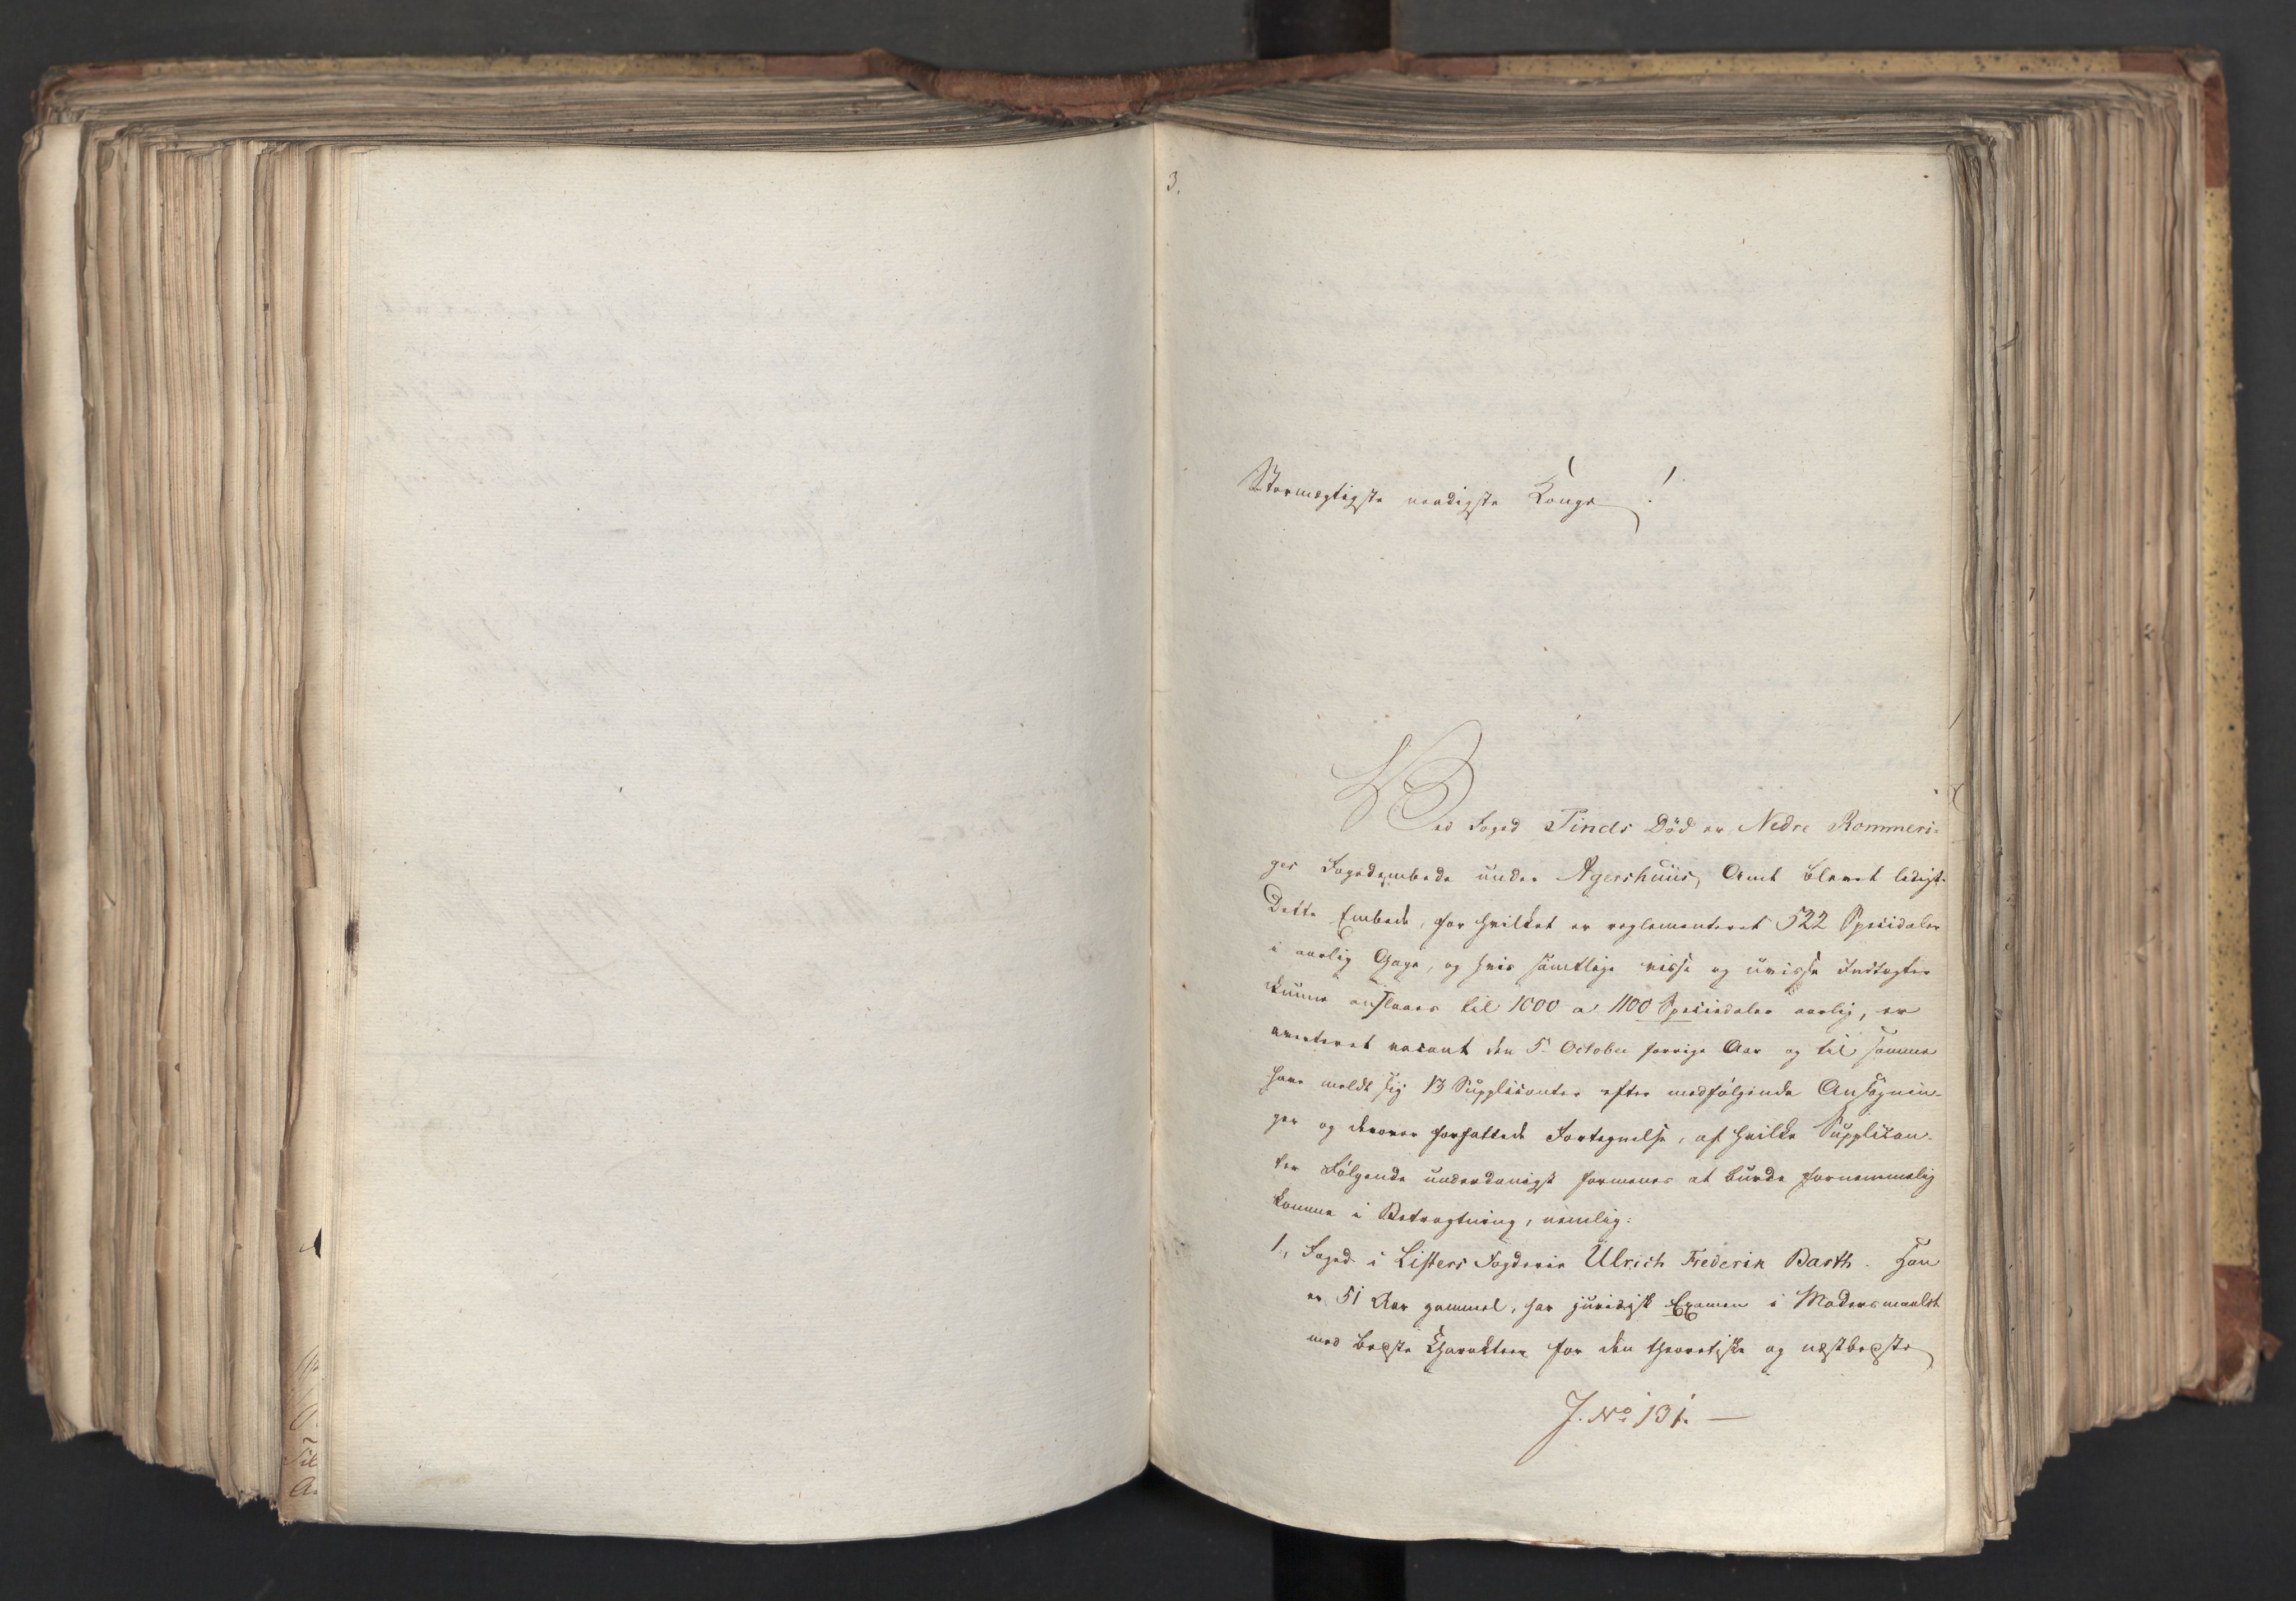 3.
Stormægtigste naadigste Konge!
Ved Foged Tinds Död er Nedre Rommeri-
ges Fogedembede under Agershuus Amt blevet ledigt.
Dette Embede, for hvilket er reglementeret 522 Speciedaler
i aarlig Gage, og hvis samtlige visse og uvisse Indtægter
kunne anslaaes til 1000 a 1100 Speciedaler aarlig, er
averteret vacant den 5te October forrige Aar og til samme
have meldt sig 13 Supplicanter efter medfølgende Ansögnin-
ger og derover forfattede Fortegnelse, af hvilke Supplican-
ter Følgende underdanigst formenes at burde fornemmelig
komme i Betragtning, nemlig:
1, Foged i Listers Fogderie Ulrich Frederik Barth. Han
er 51 Aar gammel, har juridisk Examen i Modersmaalet
med beqste Charakteer for den theoretiske og næstbeqste
J. No 131. —
Til